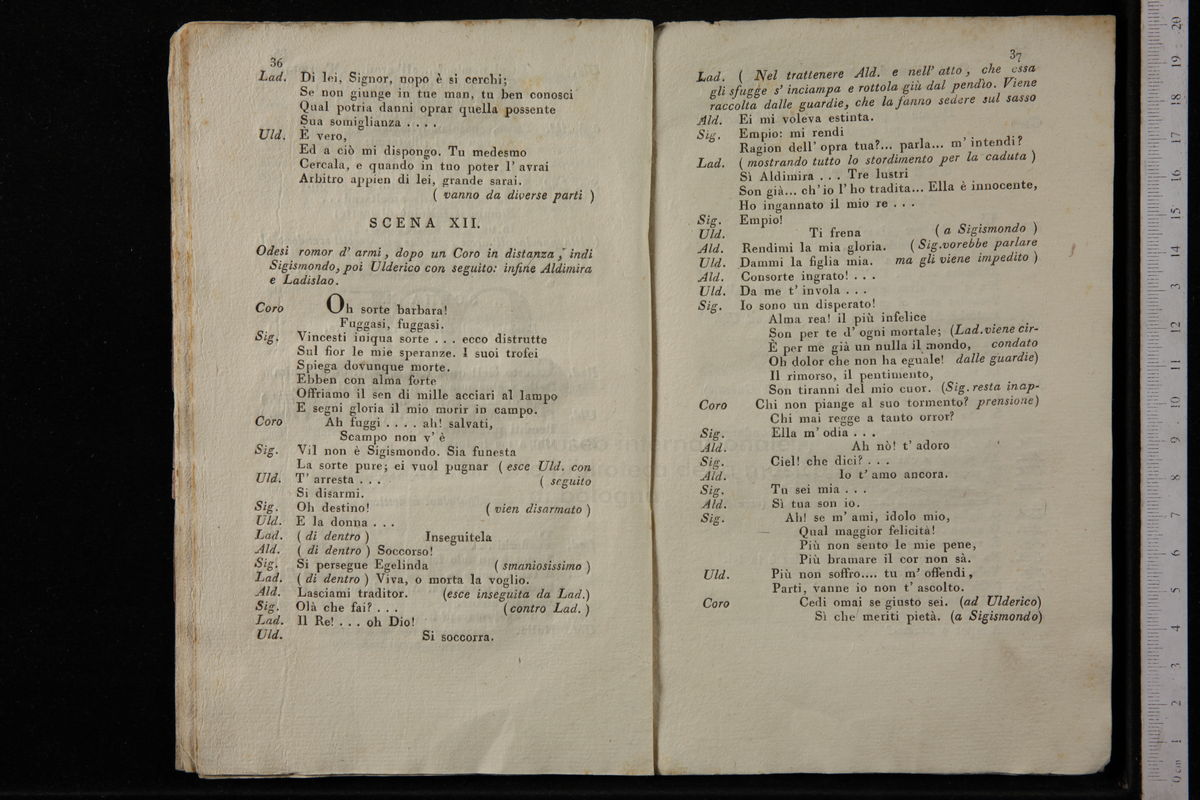 36
Lad. Di lei, Signor, uopo è si cerchi;
Se non giunge in tue man, tu ben conosci
Qual potria danni oprar quella possente
Sua somiglianza . . . .
Uld. È vero,
Ed a ciò mi dispongo. Tu medesmo
Cercala, e quando in tuo poter l' avrai
Arbitro appien di lei, grande sarai.
( vanno da diverse parti )
SCENA XII.
Odesi romor d' armi, dopo un Coro in distanza, indi
Sigismondo, poi Ulderico con seguito: infine Aldimira
e Ladislao.
Coro Oh sorte barbara!
Fuggasi, fuggasi.
Sig. Vincesti iniqua sorte . . . ecco distrutte
Sul fior le mie speranze. I suoi trofei
Spiega dovunque morte.
Ebben con alma forte
Offriamo il sen di mille acciari al lampo
E segni gloria il mio morir in campo.
Coro Ah fuggi . . . . ah! salvati,
Scampo non v' è
Sig. Vil non è Sigismondo. Sia funesta
La sorte pure; ei vuol pugnar ( esce Uld. con
Uld. T' arresta . . . ( seguito
Si disarmi.
Sig. Oh destino! ( vien disarmato )
Uld. E la donna . . .
Lad. ( di dentro ) Inseguitela
Ald. ( di dentro ) Soccorso!
Sig. Si persegue Egelinda ( smaniosissimo )
Lad. ( di dentro ) Viva, o morta la voglio.
Ald. Lasciami traditor. (esce inseguita da Lad.)
Sig. Olà che fai? . . . (contro Lad. )
Lad. Il Re! . . . oh Dio!
Uld. Si soccorra.
37
Lad. ( Nel trattenere Ald. e nell' atto, che essa
gli sfugge s' inciampa e rottola giù dal pendìo. Viene
raccolta dalle guardie, che la fanno sedere sul sasso
Ald. Ei mi voleva estinta.
Sig. Empio: mi rendi
Ragion dell' opra tua?... parla... m' intendi?
Lad. ( mostrando tutto lo stordimento per la caduta )
Sì Aldimira . . . Tre lustri
Son già... ch' io l' ho tradita... Ella è innocente,
Ho ingannato il mio re . . .
Sig. Empio!
Uld. Ti frena ( a Sigismondo )
Ald. Rendimi la mia gloria. ( Sig. vorebbe parlare
Uld. Dammi la figlia mia. ma gli viene impedito )
Ald. Consorte ingrato! . . .
Uld. Da me t' invola . . .
Sig. Io sono un disperato!
Alma rea! il più infelice
Son per te d' ogni mortale; (Lad. viene cir-
È per me già un nulla il mondo, condato
Oh dolor che non ha eguale! dalle guardie)
Il rimorso, il pentimento,
Son tiranni del mio cuor. (Sig. resta inap-
Coro Chi non piange al suo tormento? prensione)
Chi mai regge a tanto orror?
Sig. Ella m' odia . . .
Ald. Ah nò! t' adoro
Sig. Ciel! che dici? . . .
Ald. Io t' amo ancora.
Sig. Tu sei mia . . .
Ald. Sì tua son io.
Sig. Ah! se m' ami, idolo mio,
Qual maggior felicità!
Più non sento le mie pene,
Più bramare il cor non sà.
Uld. Più non soffro.... tu m' offendi,
Parti, vanne io non t' ascolto.
Coro Cedi omai se giusto sei. (ad Ulderico)
Sì che meriti pietà. (a Sigismondo)